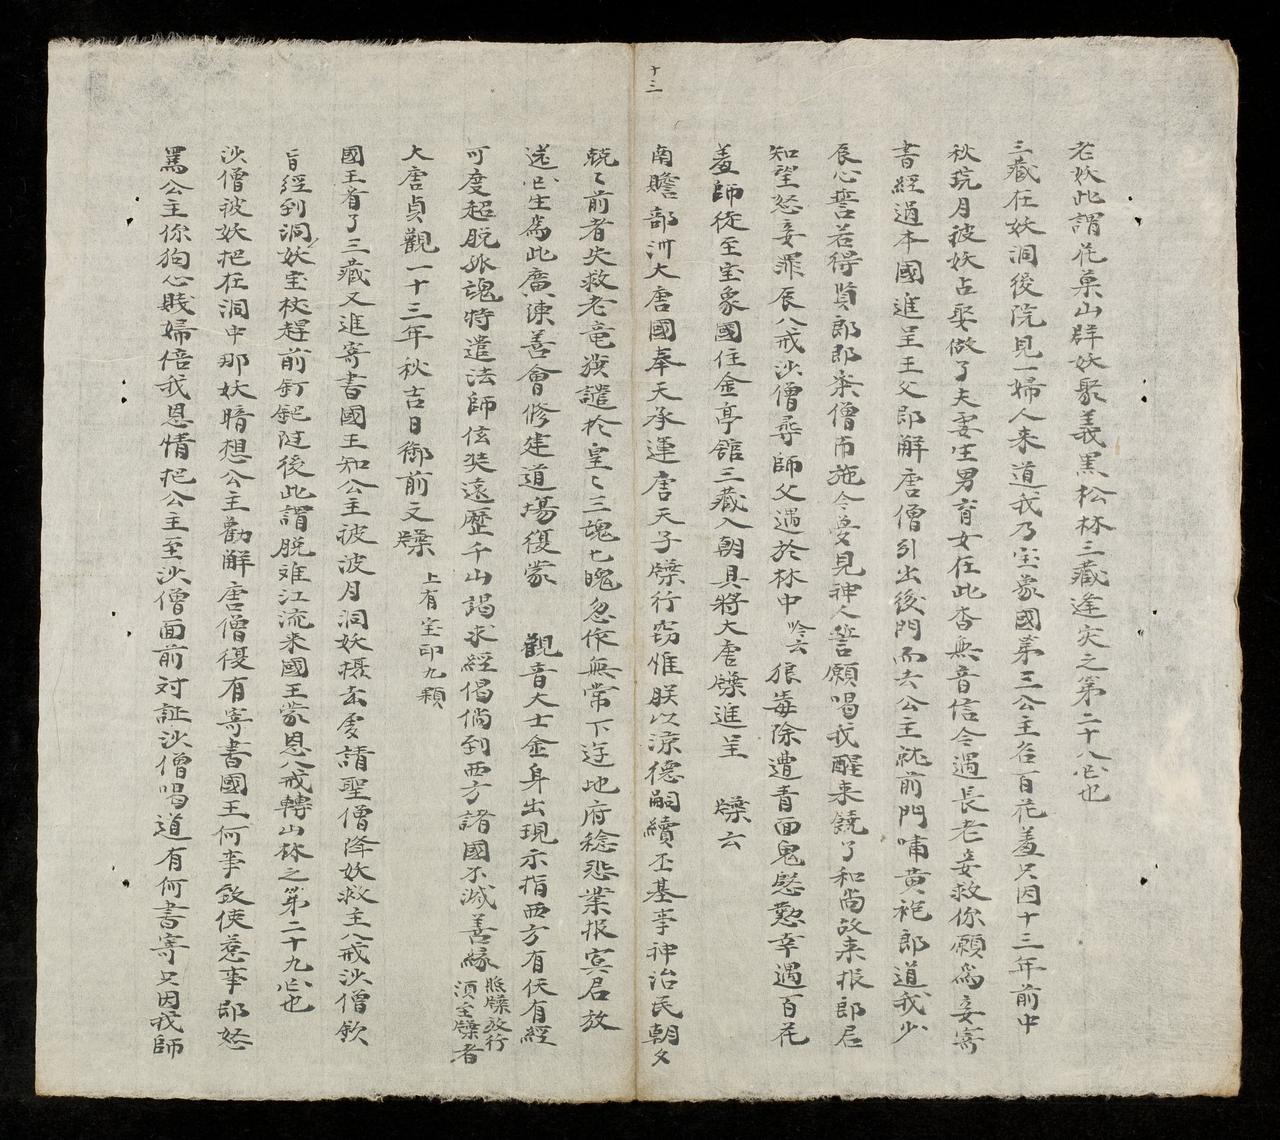 老妖此謂花菓山群妖聚義黑松林三藏逢灾之第二十八回也
三藏在妖洞後院見一婦人来道我乃宝象國第三公主名百花羞只因十三年前中
秋玩月被妖占娶做了夫妻生男育女在此杳無音信今遇長老妾救你願為妾寄
書經過本國進呈王父即解唐僧引出後門而去公主就前門喃黄袍郎道我少
辰心誓若得賢郎即齋僧布施今夢見神人誓願喝我醒来饒了和尚故来报郎君
知望恕妾罪辰八戒沙僧尋師父遇於林中 吟云 狼毒除遭青面鬼慇懃幸遇百花
羞師徒至宝象國住金亭舘三藏入朝具將大唐牒進呈 牒云
十三
南贍部洲大唐國奉天承運唐天子牒行窃惟朕以凉德嗣續丕基事神治民朝夕
兢〻前者失救老竜獲譴於皇〻三魂七魄忽作無常下逰地府稔悲業报冥君放
送回生為此廣陳善會修建道場復蒙 觀音大士金身出現示指西方有仸有經
可度超脱孤魂特遣法師玄奘遠歷千山謁求經偈倘到西方諸國不滅善緣 照牒放行 須至牒者
大唐貞觀一十三年秋吉日御前文牒 上有宝印九顆
國王看了三藏又進寄書國王知公主被波月洞妖摄去處請聖僧降妖救主八戒沙僧欽
旨經到洞妖宝杖趕前釘鈀随後此謂脱难江流来國王蒙恩八戒轉山林之第二十九回也
沙僧被妖把在洞中那妖暗想公主勸解唐僧復有寄書國王何事致使惹事即怒
罵公主你狗心賤婦倍我恩情把公主至沙僧面前对証沙僧喝道有何書寄只因我師